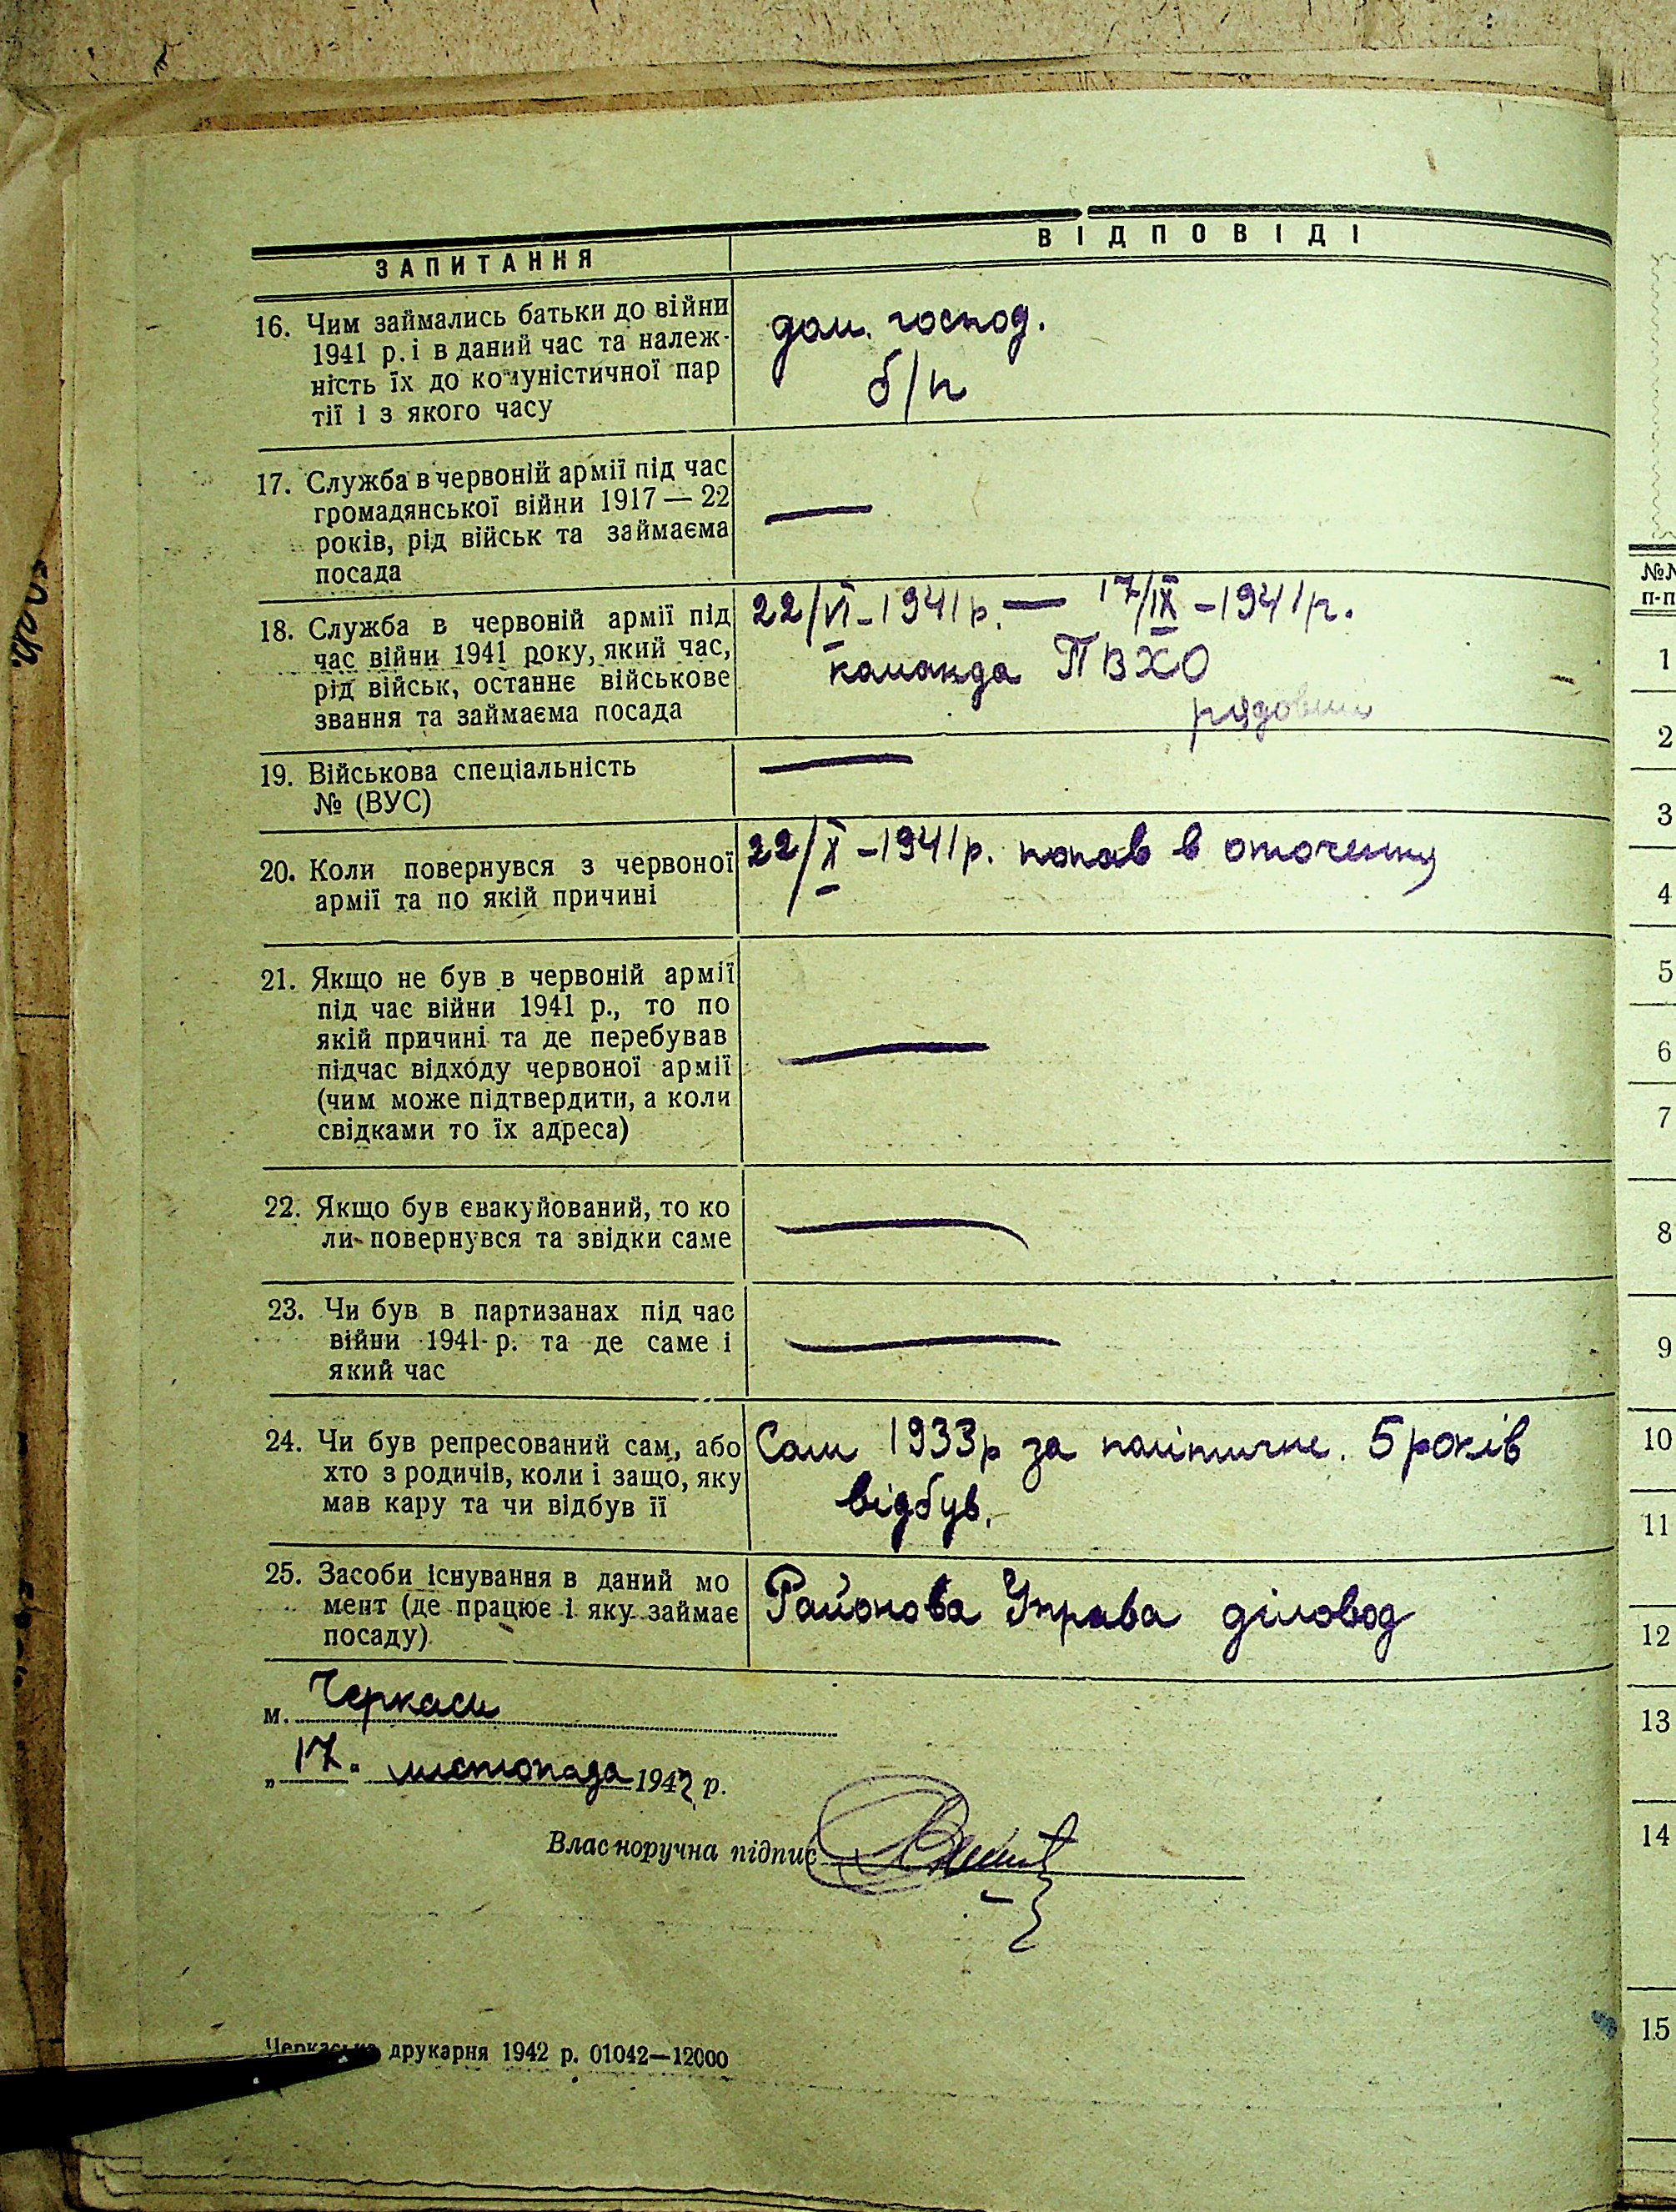 ЗАПИТАННЯ
ВІДПОВІДІ
16. Чим займались батьки до війни
1941 р. і в даний час та належ-
ність їх до комуністичної пар
тії і з якого часу
дом. господ.
б/п
17. Служба в червоній армії під час
громадянської війни 1917 — 22
років, рід військ та займаєма
посада
—
18. Служба в червоній армії під
час війни 1941 року, який час,
рід військ, останнє військове
звання та займаєма посада
22/VI – 1941 р. — 17/IX – 1941 р.
команда ПВХО
рядовий
19. Військова спеціальність
№ (ВУС)
—
20. Коли повернувся з червоної
армії та по якій причині
22/X – 1941 р. попав в оточення
21. Якщо не був в червоній армії
під час війни 1941 р., то по
якій причині та де перебував
підчас відходу червоної армії
(чим може підтвердити, а коли
свідками то їх адреса)
—
22. Якщо був євакуйований, то ко
ли повернувся та звідки саме
—
23. Чи був в партизанах під час
війни 1941 р. та де саме і
який час
—
24. Чи був репресований сам, або
хто з родичів, коли і защо, яку
мав кару та чи відбув її
Сам 1933 р за політичне. 5 років
відбув.
25. Засоби існування в даний мо
мент (де працює і яку займає
посаду)
Районова Управа діловод
м. Черкаси
„17" листопада 1942 р.
Власноручна підпис
Черкаська друкарня 1942 р. 01042—12000
№№
п-п
1
2
3
4
5
6
7
8
9
10
11
12
13
14
15